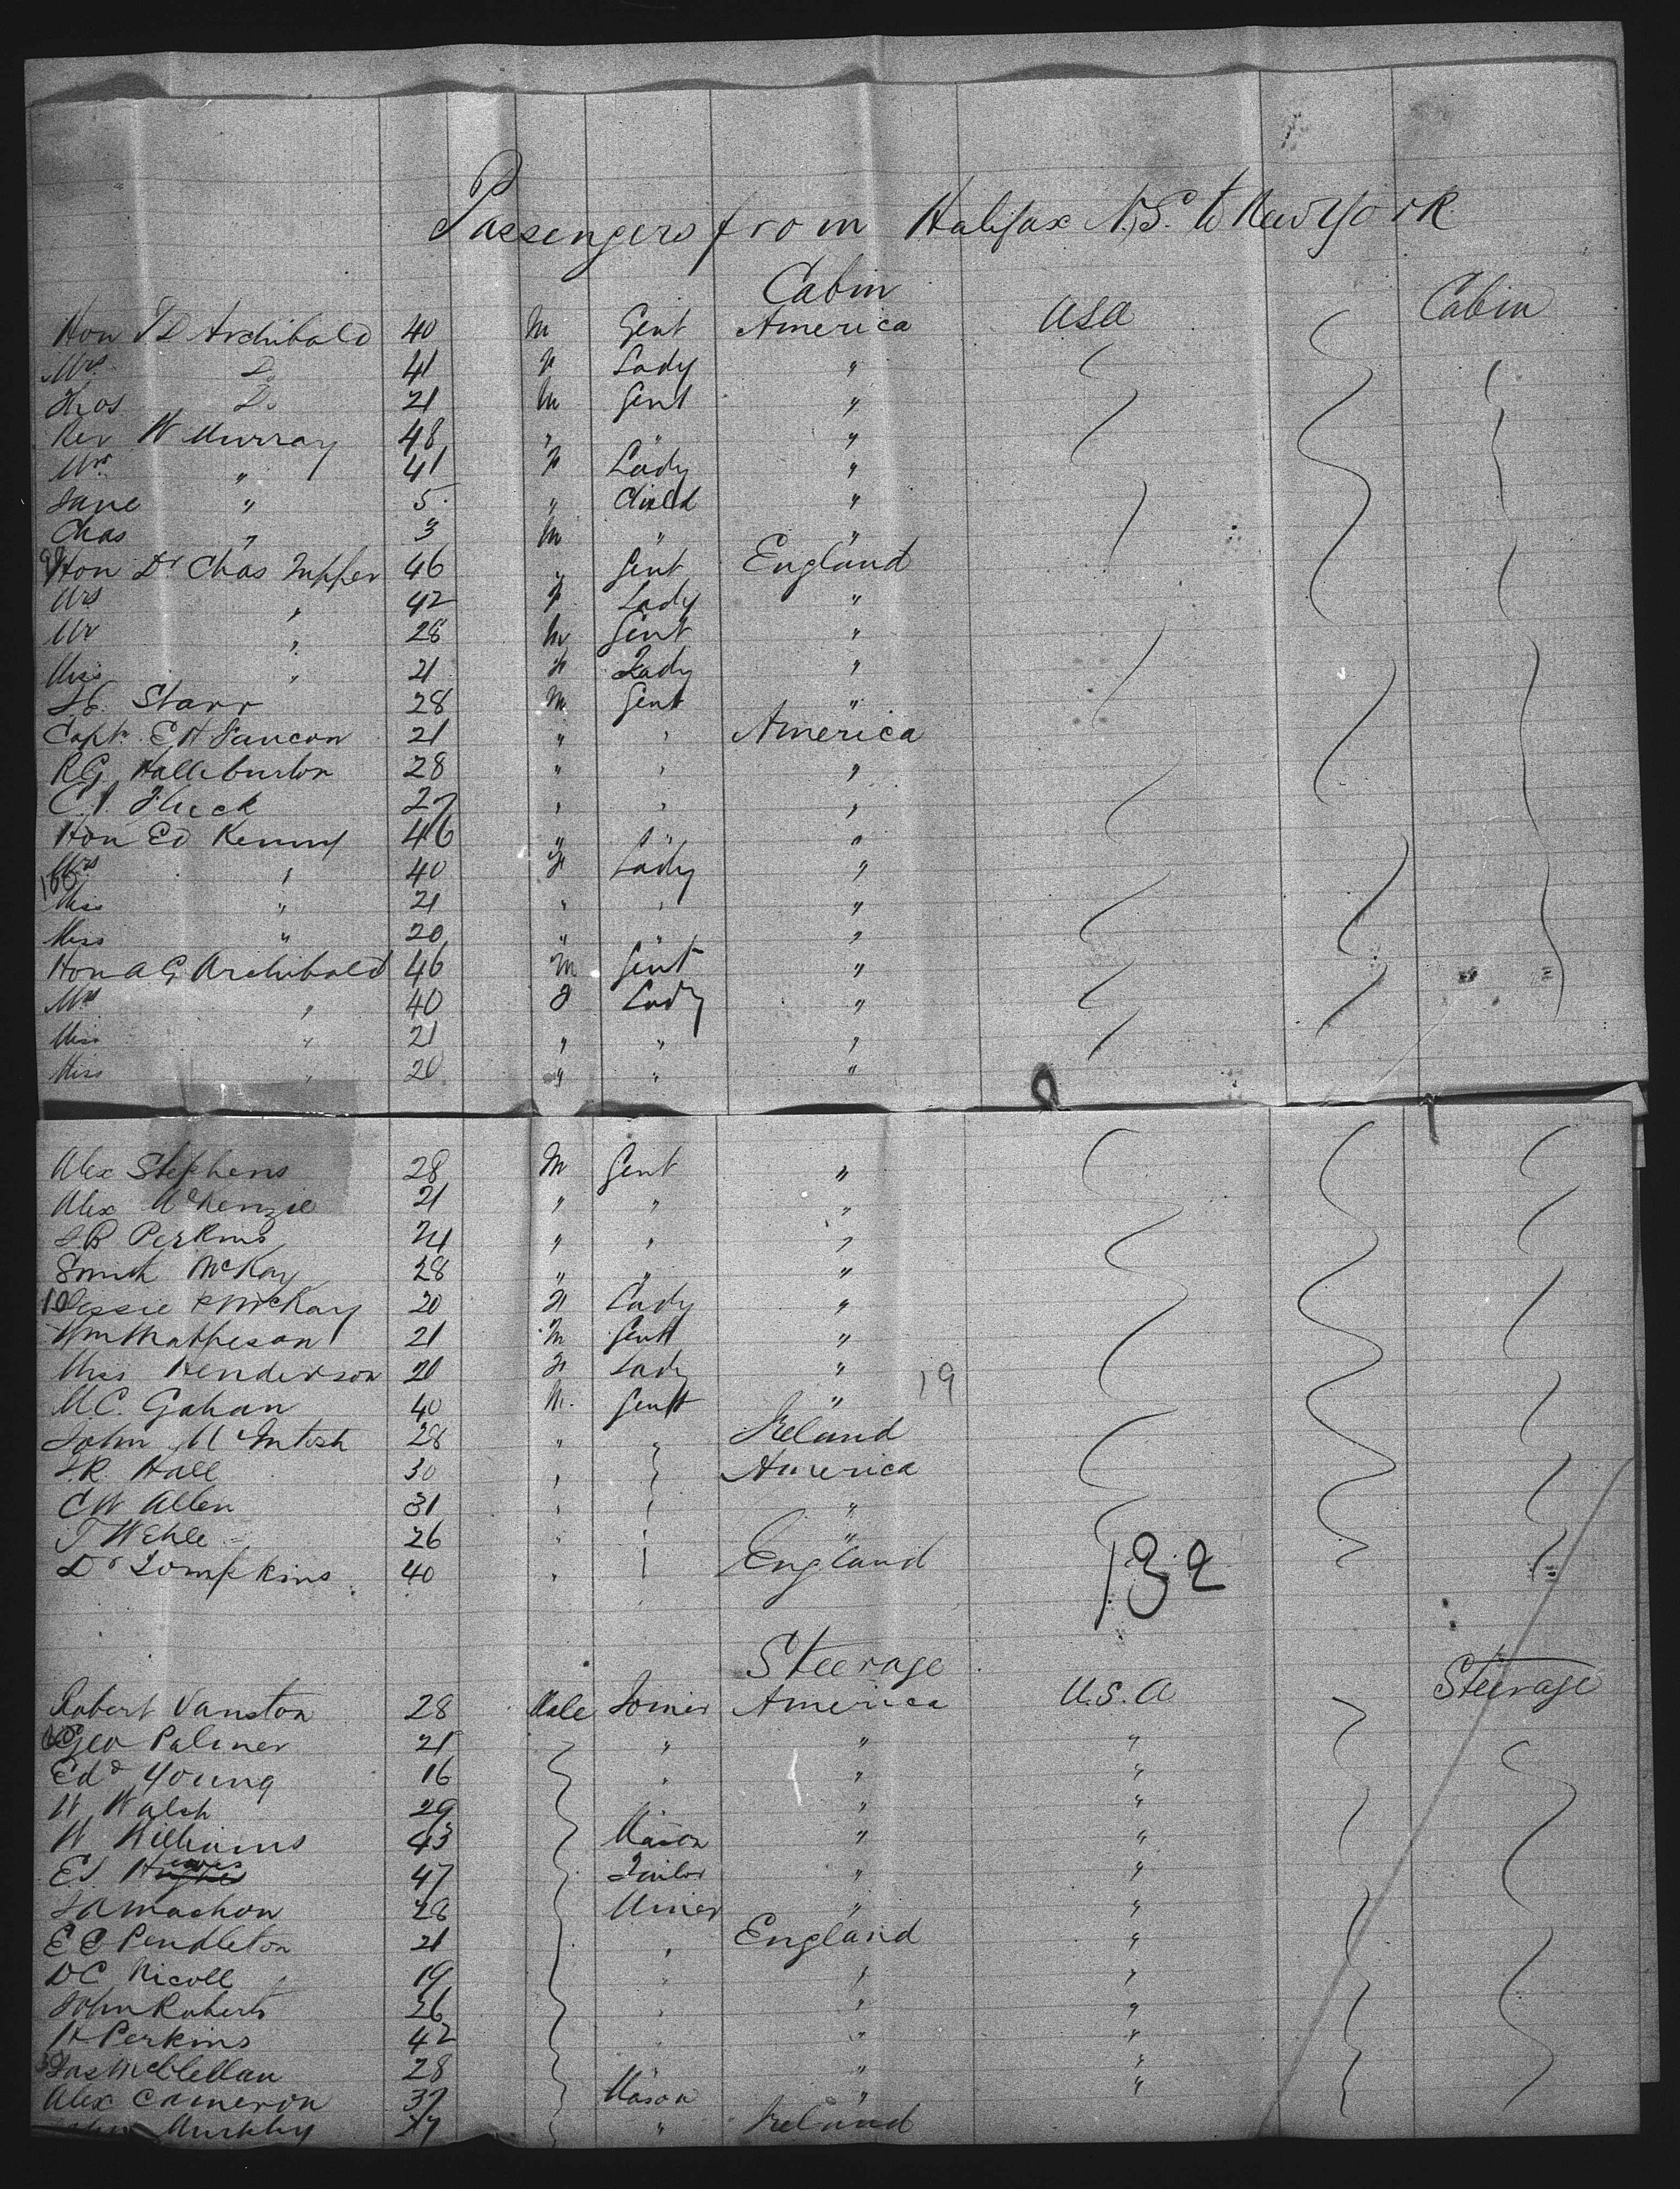 Passengers from Halifax N.S. to New York
Cabin
Hon T D Archibald 40 M Gent America USA Cabin
Mrs Do 41 F Lady "
Thos Do 21 M Gent "
Rev W Murray 48 " " "
Mrs " 41 F Lady "
Jane " 5 " Child "
Chas " 3 M " "
Hon Dr Chas Tupper 46 " Gent England
Mrs " 42 F Lady "
Mr " 28 M Gent "
Miss " 21 F Lady "
Starr 28 M Gent "
Capt. E H Faucon 21 " " America
R G Halleburton 28 " " "
C. Fluck 27 " " "
Hon Ed Kenny 46 " " "
Mrs " 40 F Lady "
Miss " 21 " " "
Miss " 20 " " "
Hon A G Archibald 46 M Gent "
Mrs " 40 F Lady "
Miss " 21 " " "
Miss " 20 " " "
Alex Stephens 28 M Gent "
Alex McKenzie 21 " " "
J.B Perkins 24 " " "
Smith McKay 28 " " "
Jessie McKay 20 F Lady "
Wm Matheson 21 M Gent "
Miss Henderson 20 F Lady "
M C. Gahan 40 M. Gent " 19
John McIntosh 28 " " Ireland
J.R. Hall 30 " " America
C W Allen 31 " " "
T Wehle 26 " " "
Dr Tompkins 40 " " England 132
Steerage
Robert Vanston 28 Male Joiner America U.S.A Steerage
Geo Palmer 21 " " "
Edd Young 16 " " "
W Walsh 29 " " "
W Williams 43 Mason " "
E J 47 Tailor " "
J A Machon 28 Miner " "
E C Pendleton 21 " England "
D C Nicoll 19 " " "
John Roberts 26 " " "
H Perkins 42 " " "
Jas McClellan 28 " " "
Alex Cameron 37 Mason " "
Murphy 27 " Ireland